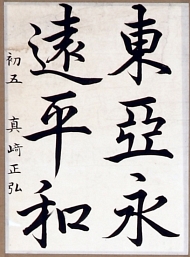 東亞永
遠平和
初五 真﨑正弘